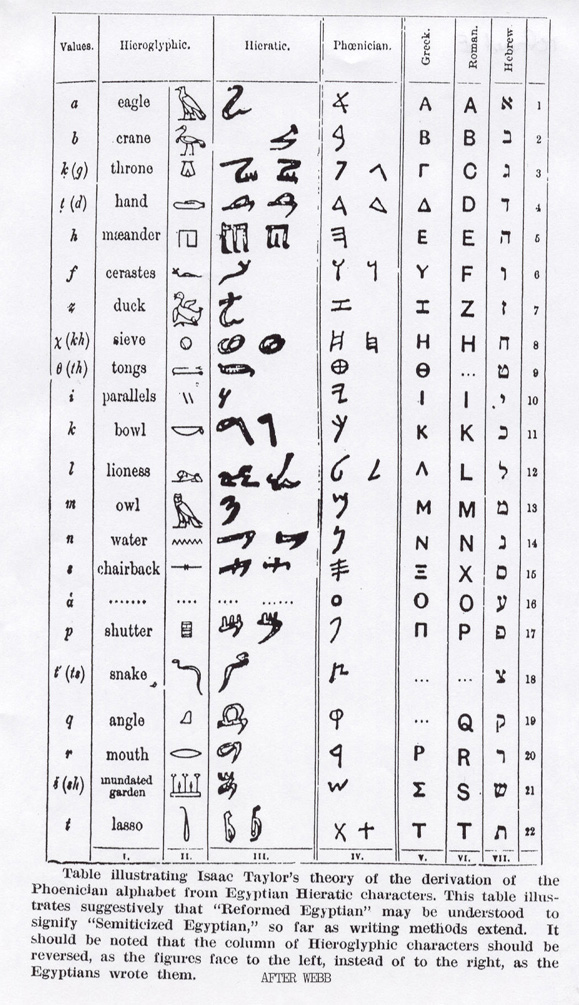 Values. Hieroglyphic. Hieratic. Phœnician. Greek. Roman. Hebrew.
a eagle Α A א 1
b crane Β B ב 2
k (g) throne Γ C ג 3
ṭ (d) hand Δ D ד 4
h mæander Ε E ה 5
f cerastes Υ F ו 6
z duck Ζ Z ז 7
χ (kh) sieve Η H ח 8
θ (th) tongs Θ ... ט 9
i parallels Ι I י 10
k bowl Κ K כ 11
l lioness Λ L ל 12
m owl Μ M מ 13
n water Ν N נ 14
s chairback Ξ X ס 15
ά ....... .... .... ...... Ο O ע 16
p shutter Π P פ 17
t' (ts) snake ... ... צ 18
q angle ... Q ק 19
r mouth Ρ R ר 20
ś (sh) inundated garden Σ S ש 21
t lasso Τ T ת 22
I. II. III. IV. V. VI. VII.
Table illustrating Isaac Taylor's theory of the derivation of the
Phoenician alphabet from Egyptian Hieratic characters. This table illus-
trates suggestively that "Reformed Egyptian" may be understood to
signify "Semiticized Egyptian," so far as writing methods extend. It
should be noted that the column of Hieroglyphic characters should be
reversed, as the figures face to the left, instead of to the right, as the
Egyptians wrote them. AFTER WEBB